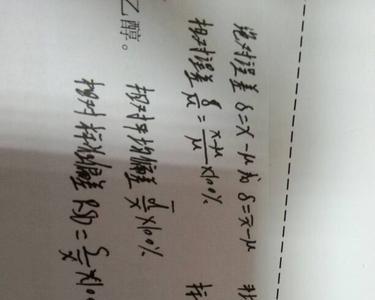 绝对误差 δ=x-μ 或 δ=x̄-μ
相对误差 δ/μ = (x-μ)/μ ×100%
乙醇。
相对平均偏差 d̄/x̄ ×100%
相对标准偏差 RSD = S/x̄ ×100